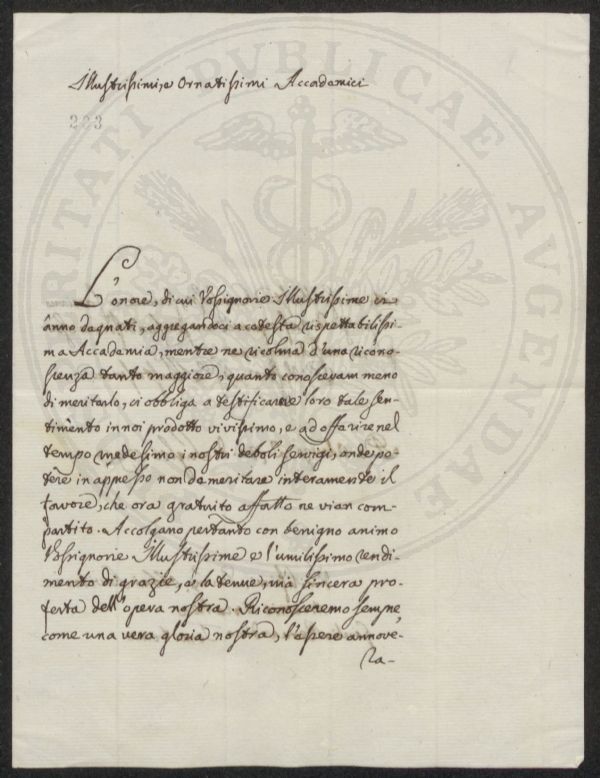 Illustrissimi, e Ornatissimi Accademici
223
L'onore, di cui Vossignorie Illustrissime ci
ànno degnati, aggregandoci a cotesta rispettabilissi-
ma Accademia, mentre ne ricolma d'una ricono-
scenza tanto maggiore, quanto conoscevam meno
di meritarlo, ci obbliga a testificare loro tale sen-
timento in noi prodotto vivissimo, e ad offarire nel
tempo medesimo i nostri deboli servigi, onde po-
tere in appresso non demeritare interamente il
favore, che ora gratuito affatto ne vien com-
partito. Accolgano pertanto con benigno animo
Vossignorie Illustrissime e l'umilissimo rendi-
mento di grazie, e la tenue, mà sincera pro-
ferta dell'opera nostra. Riconosceremo sempre
come una vera gloria nostra, l'essere annove-
ra-
VERITATI PVBLICAE AVGENDAE